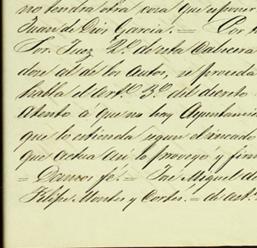 no tendrá otra cosa que esponer
Juan de Dios Garcia. = Por
Sor. Juez 2º. de esta Cabecera
don al de los Autos, se proceda
habla el Artº. 3º. del decreto
Atento a que no hay Ayuntamien
que lo estienda segun el
que actua Asi lo proveyó y firm
= Damos fé. = José Miguel de
Felipe Montes y Cortés. = de asta.